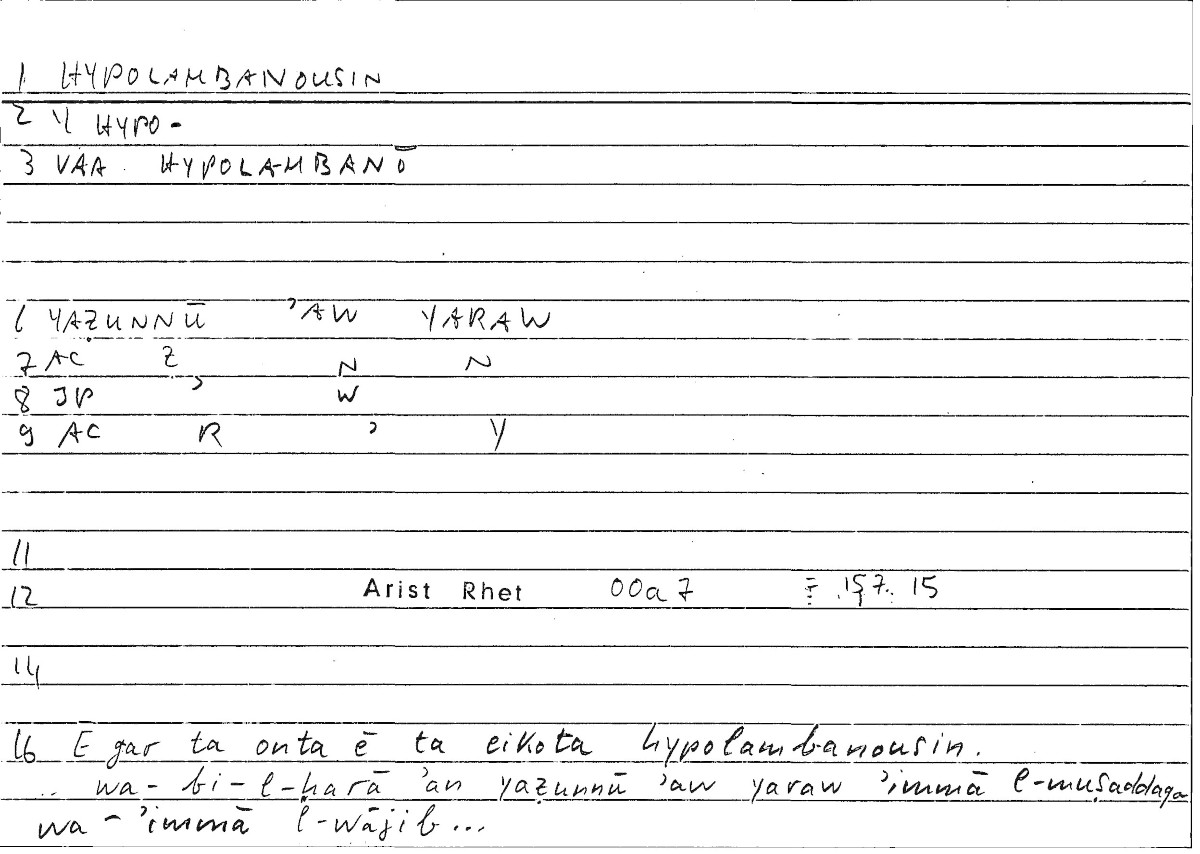 1 HYPOLAMBANOUSIN
2 Y HYPO-
3 VAA HYPOLAMBANŌ
6 YAẒUNNŪ ʾAW YARAW
7 AC Ẓ N N
8 JP ʾ W
9 AC R ʾ Y
11
12 Arist Rhet 00a7 = 157. 15
14
16 E gar ta onta ē ta eikota hypolambanousin.
.. wa-bi-l-ḥarā ʾan yaẓunnū ʾaw yaraw ʾimmā l-muṣaddaqa
wa-ʾimmā l-wājib...